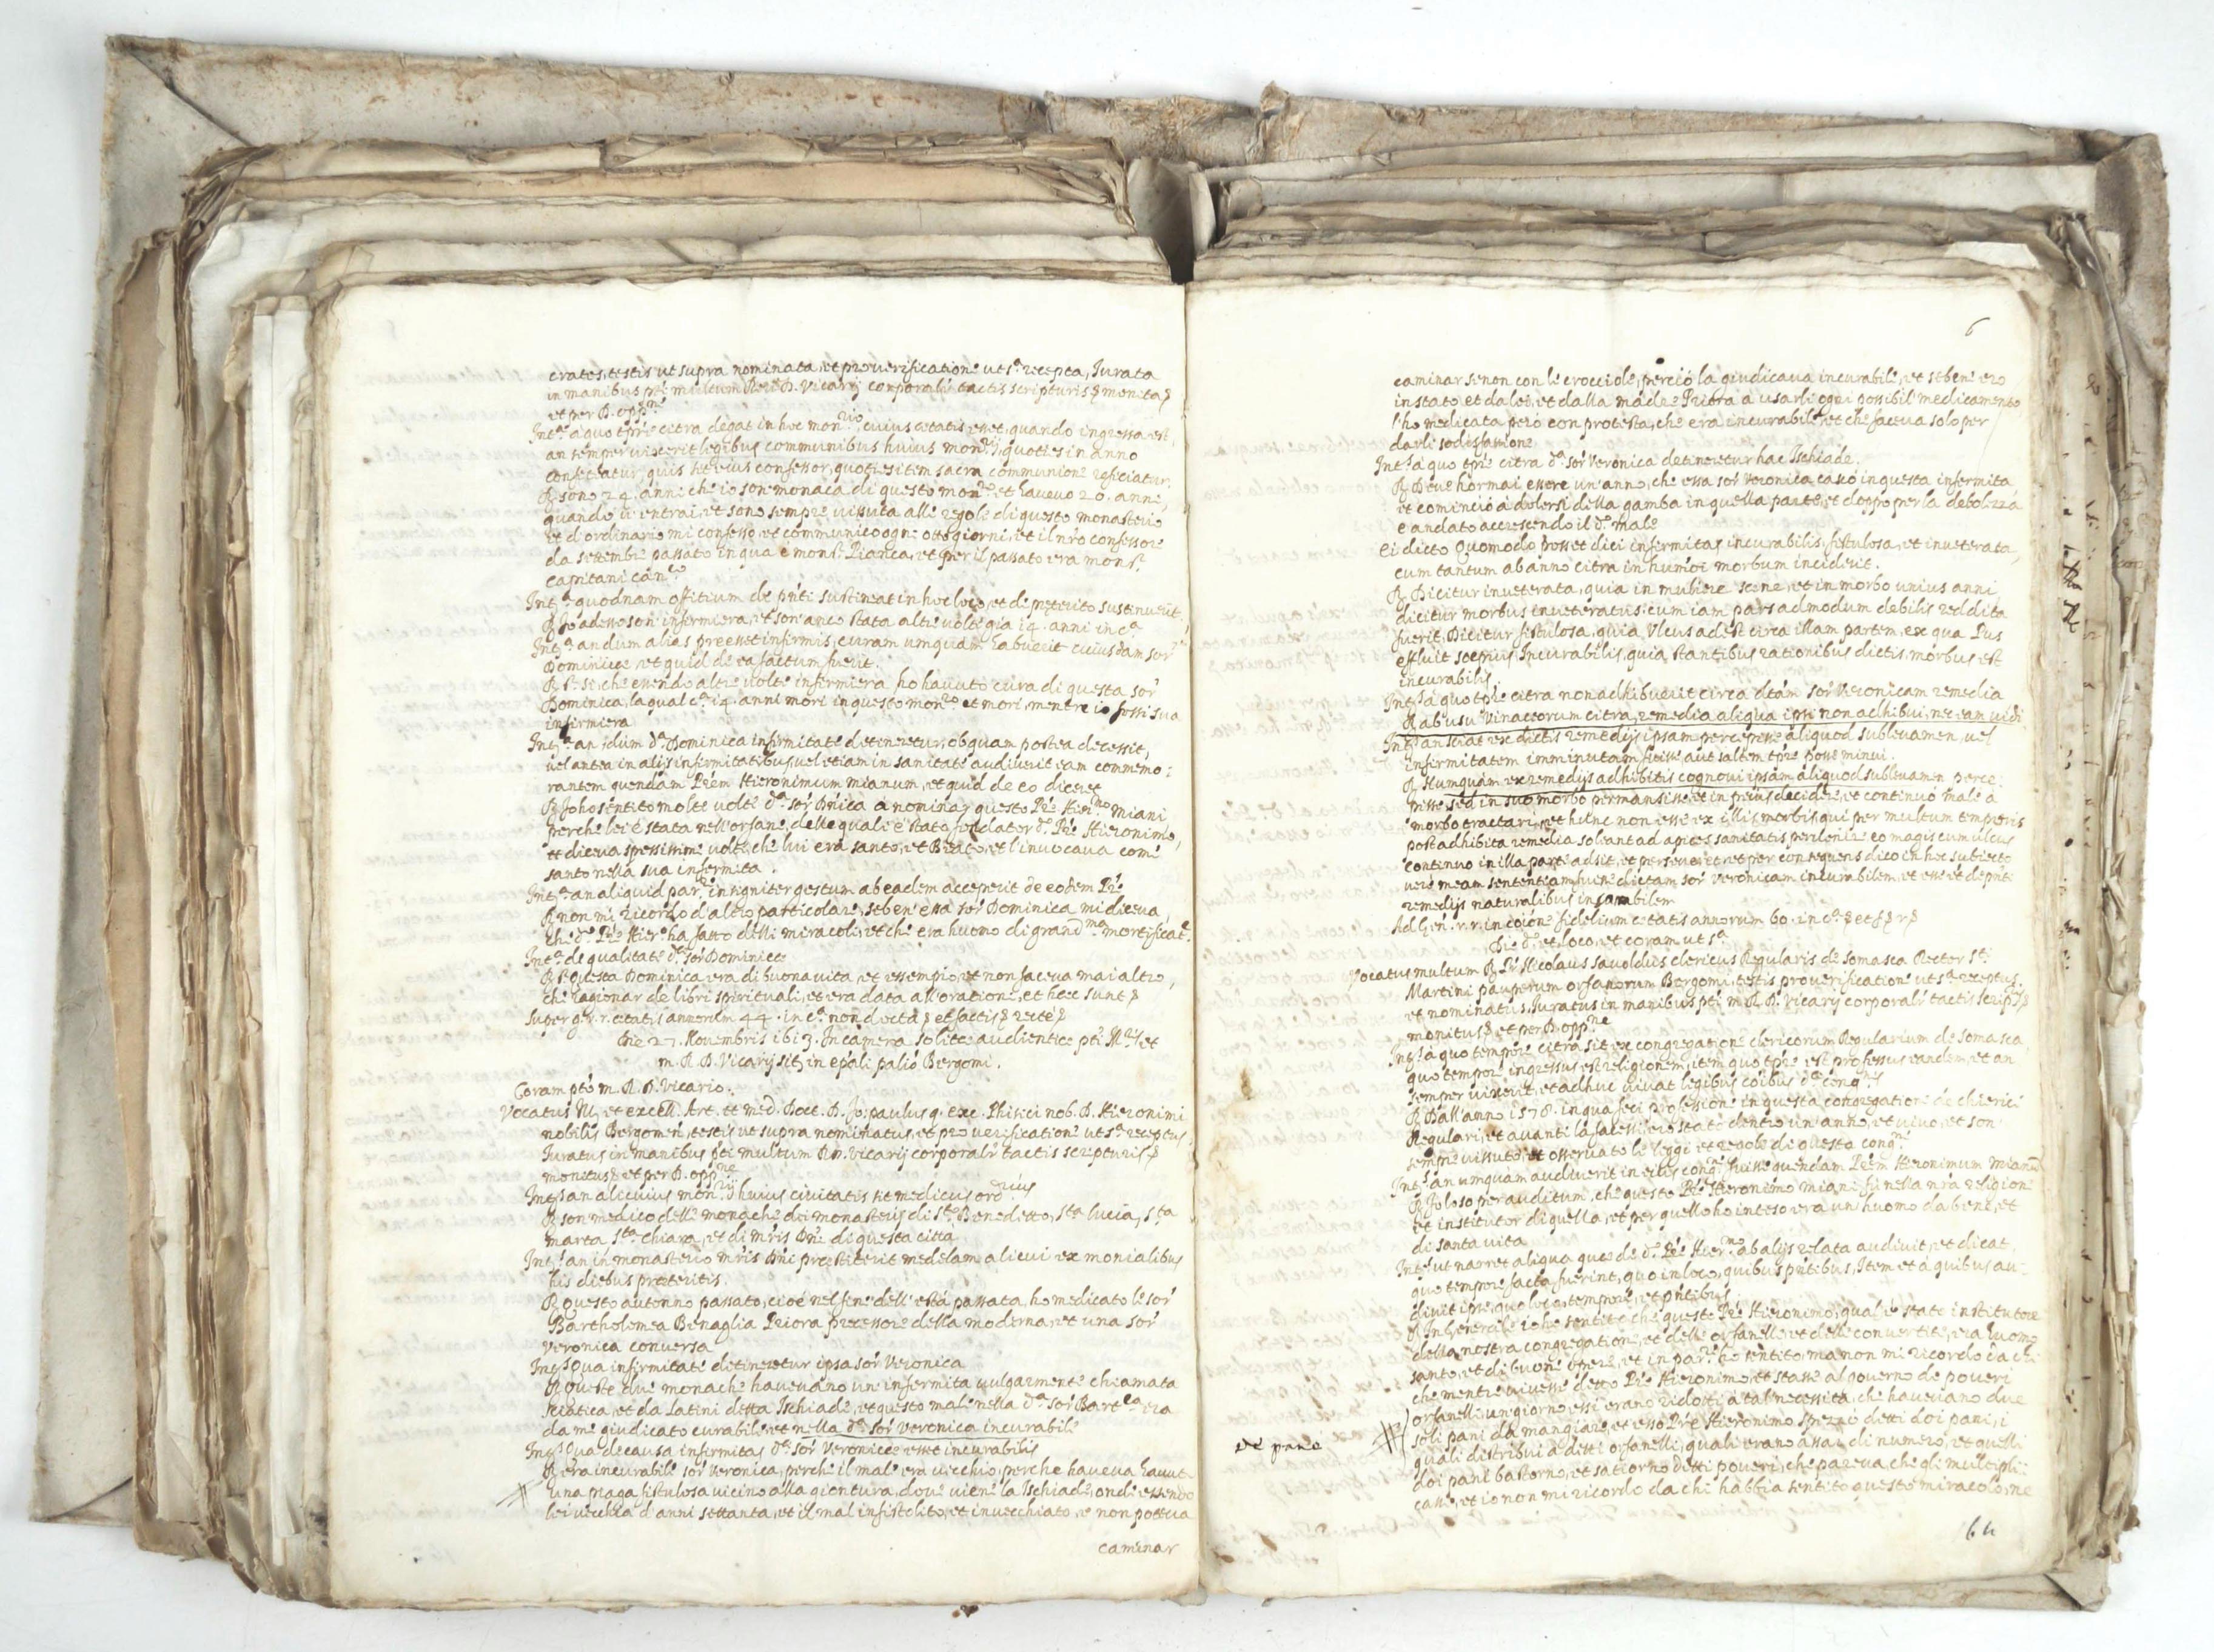 crates, testis ut supra nominata, et pro verificatione ut sª recepta, Jurata
in manibus pti multum Rdi D. Vicarij corporalr tactis scripturis & monita &
et per D. oppne
Intª a quo tpre citra degat in hoc monrio, cuius ætatis esset, quando ingressa est,
an semper vixerit legibus communibus huius monrij, quoties in anno
confiteatur, quis sit eius confessor, quoties item sacra communione reficiatur.
R sono 24. anni che io son monaca di questo monrio et havevo 20. anni,
quando ci entrai, et sono sempre vissuta alle regole di questo monasterio
et d'ordinario mi confesso, et communico ogni otto giorni, et il nro confessore
da settembre passato in qua è monsr Pianca, et per il passato era monsr
Capitani canco
Intª quodnam offitium de pnti sustineat in hoc loco, et de preterito sustinuerit
R Io adesso son infermiera, et son anco stata altre volte già 14. anni in cª
Intª an dum alias preesset infirmis, curam umquam habuerit cuiusdam sorris
Dominicæ, et quid de ea factum fuerit.
R Pr si, che essendo altre volte infirmiera ho havuto cura di questa sor
Dominica, la qual cª 14. anni morì in questo monrio et morì, mentre io fossi sua
infirmiera
Intª an dum dª Dominica infirmitate detineretur, ob quam postea decessit,
vel antea in alijs infirmitatibus, vel etiam in sanitate audiverit eam commemo:
rantem quendam Prem Hieronimum Mianum, et quid de eo diceret
R Io ho sentito molte volte dª sor Dnica a nominar questo Pre Hiermo Miani
perche lei è stata nell'orfane, delle quali è stato fondator d. Pre Hieronimo,
et diceva spessissime volte, che lui era santo, et Beato, et l'invocava come
santo nella sua infermita.
Intª an aliquid parre insigniter gestum ab eadem acceperit de eodem Pre
R non mi ricordo d'altro particolare, se bene essa sor Dominica mi diceva,
che d. Pre Hiermo ha fatto delli miracoli, et che era huomo di grandma mortificatne
Intª de qualitate dª sor Dominicæ
R Questa Dominica era di buona vita, et essempio, et non faceva mai altro,
che ragionar de libri spirituali, et era data all'oratione, et hæc sunt &
Super g. r. r. ætatis annorum 44. in cª non docta & et factis & recte &
Die 27. Novembris 1613. In camera solitæ audientiæ pti Mri et
m. R. D. Vicarij sit. in epali palio Bergomi.
Coram pto m. R. D. Vicario.
Vocatus Ill. et excell. Art. et med. Doct. D. Jo: paulus q. exc. Phisici nob. D. Hieronimi
nobilis Bergomen, testis ut supra nominatus, et pro verificatione ut sª receptus,
Juratus in manibus pti multum R. D. Vicarij corporalr tactis scripturis &
monitus & et per D. oppne
Intª an alicuius monrij huius civitatis sit medicus ordrius
R son medico delle monache dei monasterij di Sto Benedetto, Sta lucia, Sta
marta Sta chiara, et di mris Dni di questa città
Intª an in monasterio mris Dni præstiterit medelam alicui ex monialibus
his diebus præteritis
R Questo autonno passato, cioè nel fine dell'està passata, ho medicato le sor
Bartholomea Benaglia Priora precessore della moderna, et una sor
Veronica conversa
Intª Qua infirmitate detineretur ipsa sor Veronica
R Queste due monache havevano un'infermita vulgarmente chiamata
sciatica, et da Latini detta Ischiade, et questo male nella dª sor Bartea era
da me giudicato curabile, et nella dª sor Veronica incurabile
Intª Qua de causa infirmitas dª sor Veronicæ esset incurabilis
R era incurabile sor Veronica, perche il mal era vecchio, perche haveva havut
una piaga fistulosa vicino alla giontura, dove viene la Ischiade, onde essendo
lei vecchia d'anni settanta, et il mal infistolito, et invecchiato, e non poteva
caminar
6
caminar se non con le crocciole, perciò la giudicava incurabile, et se bene ero
in stato et da lei, et dalla madre Priora a usarli ogni possibil medicamento
l'ho medicata però con protesta, che era incurabile, et che faceva solo per
darli sodisfattione
Intª a quo tpre citra dª sor Veronica detineretur hac Ischiade.
R Deve hormai essere un'anno, che essa sor Veronica cascò in questa infermita
et cominciò a dolersi della gamba in quella parte, et doppo per la debolezza
è andato accrescendo il d. male
Ei dicto Quomodo posset dici infirmitas incurabilis, fistulosa, et inveterata,
cum tantum ab anno citra in humoi morbum inciderit.
R Dicitur inveterata, quia in muliere sene, et in morbo unius anni
dicitur morbus inveteratus, cum iam pars admodum debilis reddita
fuerit. Dicitur fistulosa, quia Ulcus adest circa illam partem, ex qua Pus
effluit sæpius, Incurabilis, quia stantibus rationibus dictis, morbus est
incurabilis.
Intª a quo tpre citra non adhibuerit circa dtam sor Veronicam remedia
R ab usu vinaceorum citra, remedia aliqua ipsi non adhibui, nec eam vidi
Intª an sciat ex dictis remedijs ipsam percepisse aliquod sublevamen, vel
infirmitatem imminutam fuisse aut saltem tpre posse minui.
R Numquam ex remedijs adhibitis cognovi ipsam aliquod sublevamen perce:
pisse, sed in suo morbo permansisse, et in peius decidere, et continuo male a
morbo tractari, et hunc non esse ex illis morbis, qui per multum temporis
post adhibita remedia soleant ad apices sanitatis pervenire eo magis cum ulcus
continuo in illa parte adsit, et perseveret, et per consequens dico in hoc subiecto
vere meam sententiam fuisse dictam sor Veronicam incurabilem, et esse et de pnti
remedijs naturalibus insanabilem
Ad Gen. r. r. in coione fidelium ætatis annorum 60. in cª & et & r &
Die dª et loco, et coram ut sª
Vocatus multum R. Pr Nicolaus Savoldius clericus Regularis de Somasca Rector Sti
Martini pauperum orfanorum Bergomi, testis pro verificatione ut sª receptus,
et nominatus, Juratus in manibus pti m. R. D. Vicarij corporalr tactis script. &
monitus & et per D. oppne
Intª a quo tempore citra sit ex congregatione clericorum Regularium de Somasca,
quo tempore ingressus est religionem, item quo tpre est professus eandem, et an
semper vixerit, et adhuc vivat legibus coibus dª congnis
R Dall'anno 1578. in qua feci professione in questa congregatione de chierici
Regulari, et avanti la facessi, ero stato dentro un'anno, et vivo, et son
sempre vissuto, et osservato le leggi et regole di questa congne
Intª an umquam audiverit in eius congne fuisse quendam Prem Hieronimum Mianu
R Io lo so per auditum, che questo Pre Hieronimo Miani fu nella nra religione
et institutor di quella, et per quello ho inteso era un huomo da bene, et
di santa vita
Intª ut narret aliqua quæ de d. Pre Hiermo ab alijs relata audivit, et dicat
quo tempore facta fuerint, quo in loco, quibus pntibus, Item et a quibus au:
divit ipse, quo loco, tempore, et pntibus
R In Generale io ho sentito che questo Pre Hieronimo, qual è stato institutore
della nostra congregatione, et delli orfanelli, et delle convertite, era huomo
santo, et di buone opere, et in parre ho sentito, ma non mi ricordo da chi
che mentre vivesse detto Pre Hieronimo, et stasse al governo de poveri
orfanelli, un giorno essi erano ridotti a tal necessità, che havevano due
soli pani da mangiare, et esso Pre Hieronimo spezzò detti doi pani, i
quali distribuì a detti orfanelli, quali erano assai di numero, et quelli
doi pani bastorno, et satiorno detti poveri, che pareva che gli multipli:
casse, et io non mi ricordo da chi habbia sentito questo miracolo, ne
de pane
64